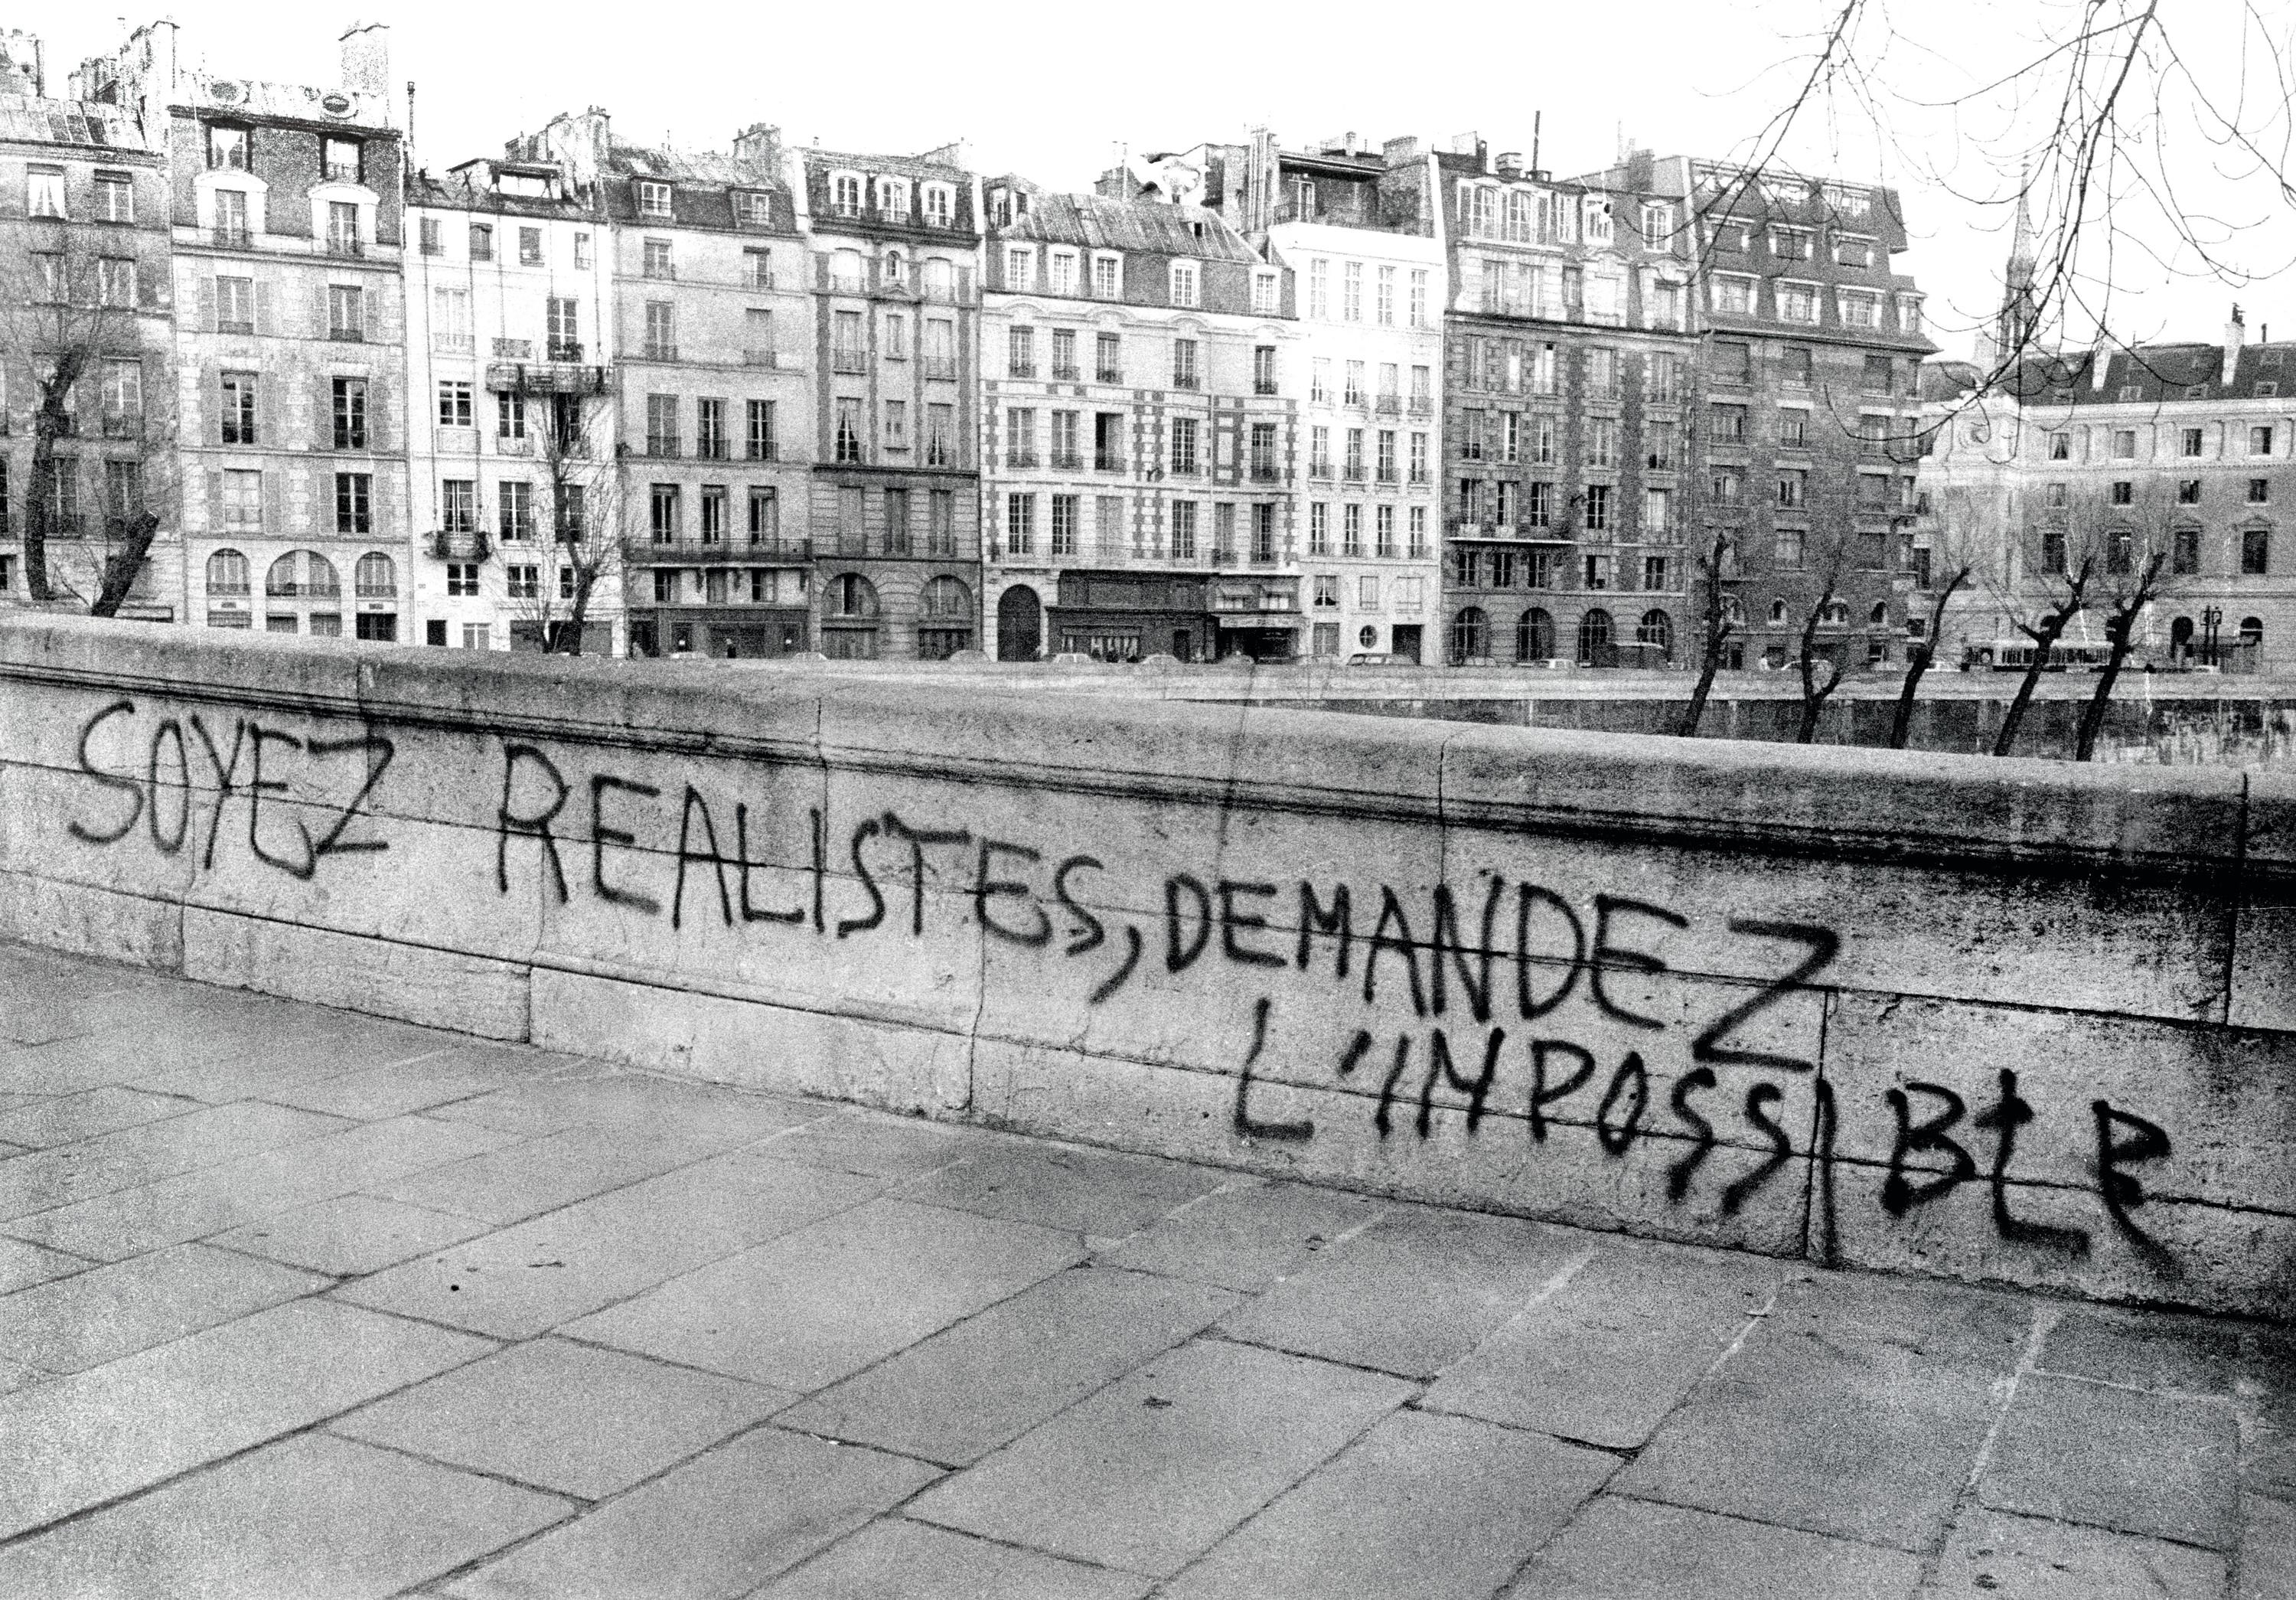 SOYEZ REALISTES, DEMANDEZ
L'INPOSSIBLE